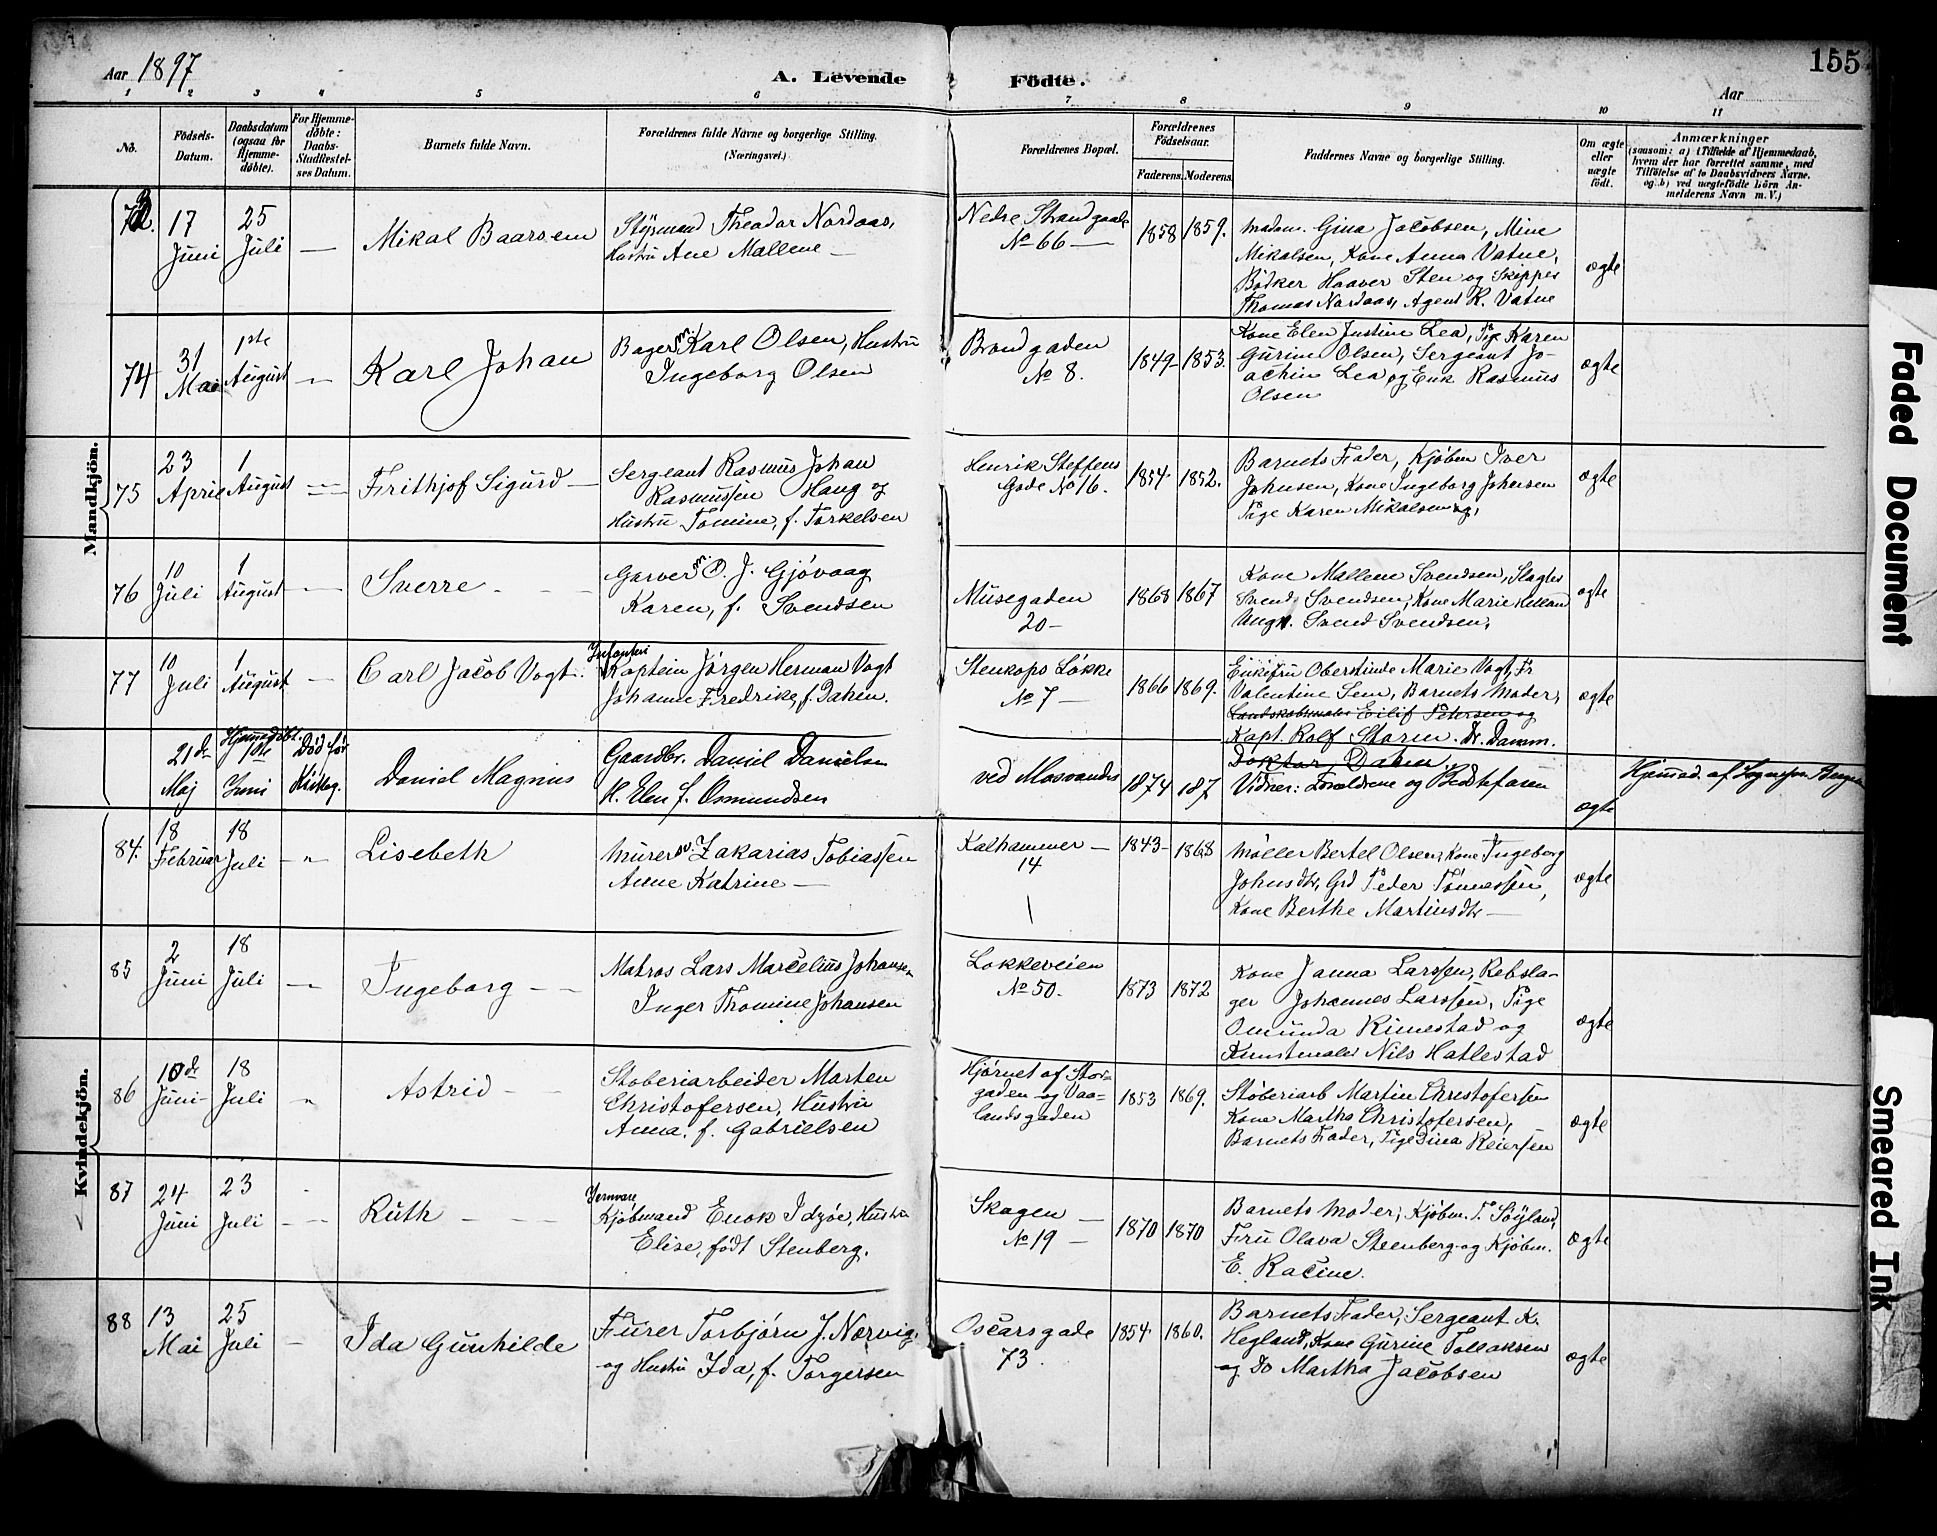 155
Aar 1897
A. Levende Födte.
Aar
1 2 3 4 5 6 7 8 9 10 11
No.
Födsels-
Datum.
Daabsdatum
(ogsaa for
Hjemme-
døbte).
For Hjemme-
døbte:
Daabs-
Stadfæstel-
ses Datum.
Barnets fulde Navn.
Forældrenes fulde Navne og borgerlige Stilling.
(Næringsvei.)
Forældrenes Bopæl.
Forældrenes
Födselsaar.
Faderens. Moderens.
Faddernes Navne og borgerlige Stilling.
Om ægte
eller
uægte
født.
Anmærkninger
(saasom: a) i Tilfælde af Hjemmedaab,
hvem der har forrettet samme, med
Tilføielse af to Daabsvidners Navne,
og b) ved uægtefödte Börn An-
melderens Navn m. V.)
Mandkjön.
73.
17
Juni
25
Juli
Mikal Baarsem
Styrmand Theodor Nordaas,
Hustru Ane Mallene
Nedre Strandgade
No 66
1858 1859.
Madam. Gina Jacobsen, Mine
Mikalsen, Kone Anna Vatne,
Bödker Haaver Sten og Skipper
Thomas Nordaas, Agent K. Vatne
ægte
74
31
Mai
1ste
August
Karl Johan
Bagersv. Karl Olsen, Hustru
Ingeborg Olsen
Brandgaden
No 8.
1849 1853.
Kone Elen Justine Lea, Pige Karen
Gurine Olsen, Sergeant Jo-
achim Lea og Enk Rasmus
Olsen
ægte
75
23
April
1
August
Frithjof Sigurd
Sergeant Rasmus Johan
Rasmussen Haug og
Hustru Tomine, f. Torkelsen
Henrik Steffens
Gade No 16.
1854 1852.
Barnets Fader, Kjøbm Iver
Johnsen, Kone Ingeborg Johnsen
Pige Karen Mikalsen
ægte
76
10
Juli
1
August
Sverre
Garversv. O. J. Gjövaag
Karen, f. Svendsen
Musegaden
20
1868 1867
Kone Mallene Svendsen, Slagter
Svend Svendsen, Kone Marie
Ungk. Svend Svendsen,
ægte
77
10
Juli
1
August
Carl Jacob Vogt.
Infanteri
Kaptein Jörgen Herman Vogt
Johanne Fredrike, f. Dahm.
Stenkops Løkke
No 7
1866 1869.
Enkefru Oberstinde Marie Vogt, Fr
Valentine Sem, Barnets Moder,
Landskabsmaler Eilif Petersen og
Kapt. Rolf Storm. Dr. Damm.
Doktor Dahm.
ægte
21de
Maj
Hjemmedöbt.
1ste
Juni
Död før
Kirkeg.
Daniel Magnus
Gaardbr. Daniel Danielsen
H. Elen f. Osmundsen
ved Mosvandet
1874 187
Vidner: Forældrene og Bedstefaren
ægte
Hjemmed. af Sognepr.
Kvindekjön.
84.
18
Februar
18
Juli
Lisebeth
Murersv. Zakarias Tobiassen
Anne Katrine
Kalhammer
14
1843 1868
Møller Bertel Olsen, Kone Ingeborg
Johnsdtr, Grd Peder Tönnessen,
Kone Berthe Martinsdtr
ægte
85
2
Juni
18
Juli
Ingeborg
Matros Lars Marcelius Johansen
Inger Thomine Johansen
Løkkeveien
No 50.
1873 1872
Kone Janna Larssen, Rebsla-
ger Johannes Larssen, Pige
Omunda Rimestad og
Kunstmaler Nils Hatlestad
ægte
86
10de
Juni
18
Juli
Astrid
Støberiarbeider Morten
Christofersen, Hustru
Anna. f. Gabrielsen
Hjørnet af Stor-
gaden og Vaa-
landsgaden
1853 1869.
Støberiarb Martin Christofersen
Kone Martha Christofersen,
Barnets Fader, Pige Dina Reiersen
ægte
87
24
Juni
23
Juli
Ruth
Jernvare
Kjøbmand Enok Idzöe, Hustru
Elise, født Stenberg.
Skagen
No 19
1870 1870
Barnets Moder, Kjøbm. T. Söyland,
Fru Olava Steenberg og Kjøbm.
E. Racine.
ægte
88
13
Mai
25
Juli
Ida Gunhilde
Furer Torbjørn J. Nærvig.
og Hustru Ida, f. Torgersen
Oscarsgade
73.
1854 1860.
Barnets Fader, Sergeant K.
Hegland, Kone Gurine Tollaksen
og Do Martha Jacobsen
ægte
Faded Document
Smeared Ink